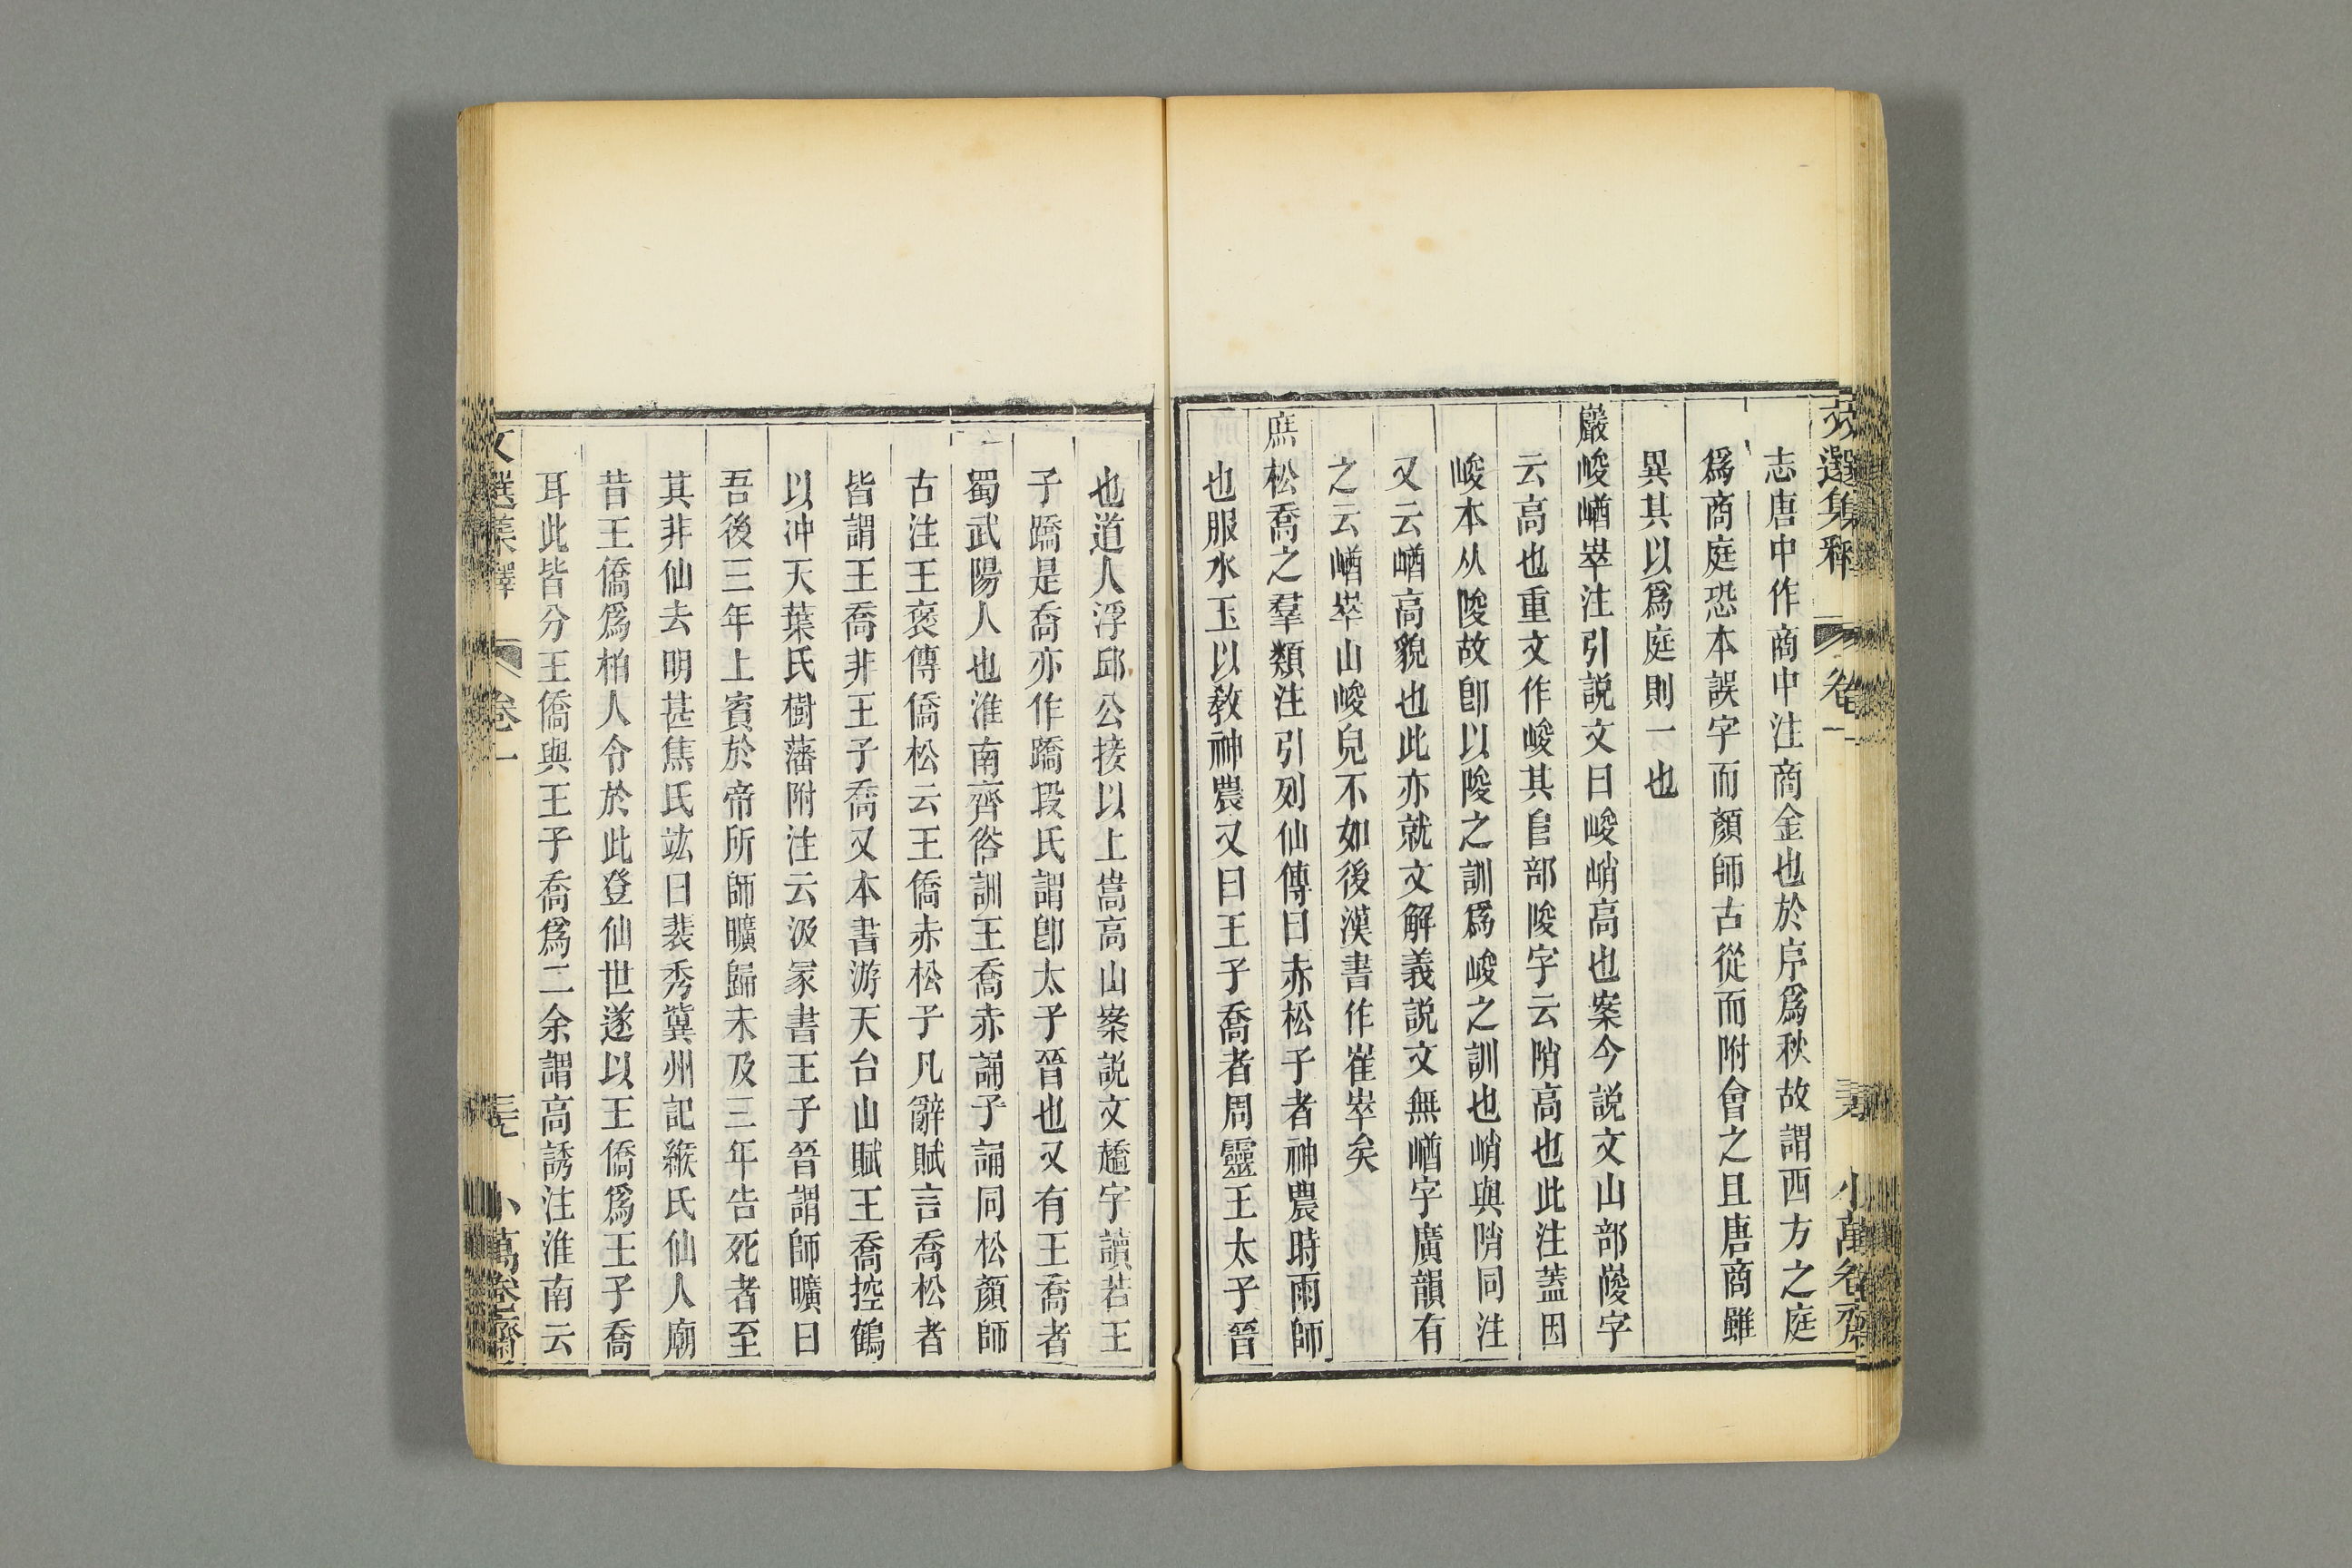 文選集釋 卷一 小萬卷齋
志唐中作商中注商金也於序爲秋故謂西方之庭
爲商庭恐本誤字而顏師古從而附會之且唐商雖
異其以爲庭則一也
巖峻崷崪注引説文曰峻峭高也案今説文山部㕙字
云高也重文作峻其𨸏部陖字云陗高也此注蓋因
峻本从陖故卽以陖之訓爲峻之訓也峭與陗同注
又云崷高貌也此亦就文解義説文無崷字廣韻有
之云崷崪山峻皃不如後漢書作崔崪矣
庶松喬之羣類注引列仙傳曰赤松子者神農時雨師
也服水玉以敎神農又曰王子喬者周靈王太子晉
也道人浮邱公接以上嵩高山案説文趫字讀若王
子蹻是喬亦作蹻段氏謂卽太子晉也又有王喬者
蜀武陽人也淮南齊俗訓王喬赤誦子誦同松顏師
古注王褒傳僑松云王僑赤松子凡辭賦言喬松者
皆謂王喬非王子喬又本書游天台山賦王喬控鶴
以冲天葉氏樹藩附注云汲冢書王子晉謂師曠曰
吾後三年上賓於帝所師曠歸未及三年告死者至
其非仙去明甚焦氏竑曰裴秀冀州記緱氏仙人廟
昔王僑爲柏人令於此登仙世遂以王僑爲王子喬
耳此皆分王僑與王子喬爲二余謂高誘注淮南云
文選集釋 卷一 三七 小萬卷齋